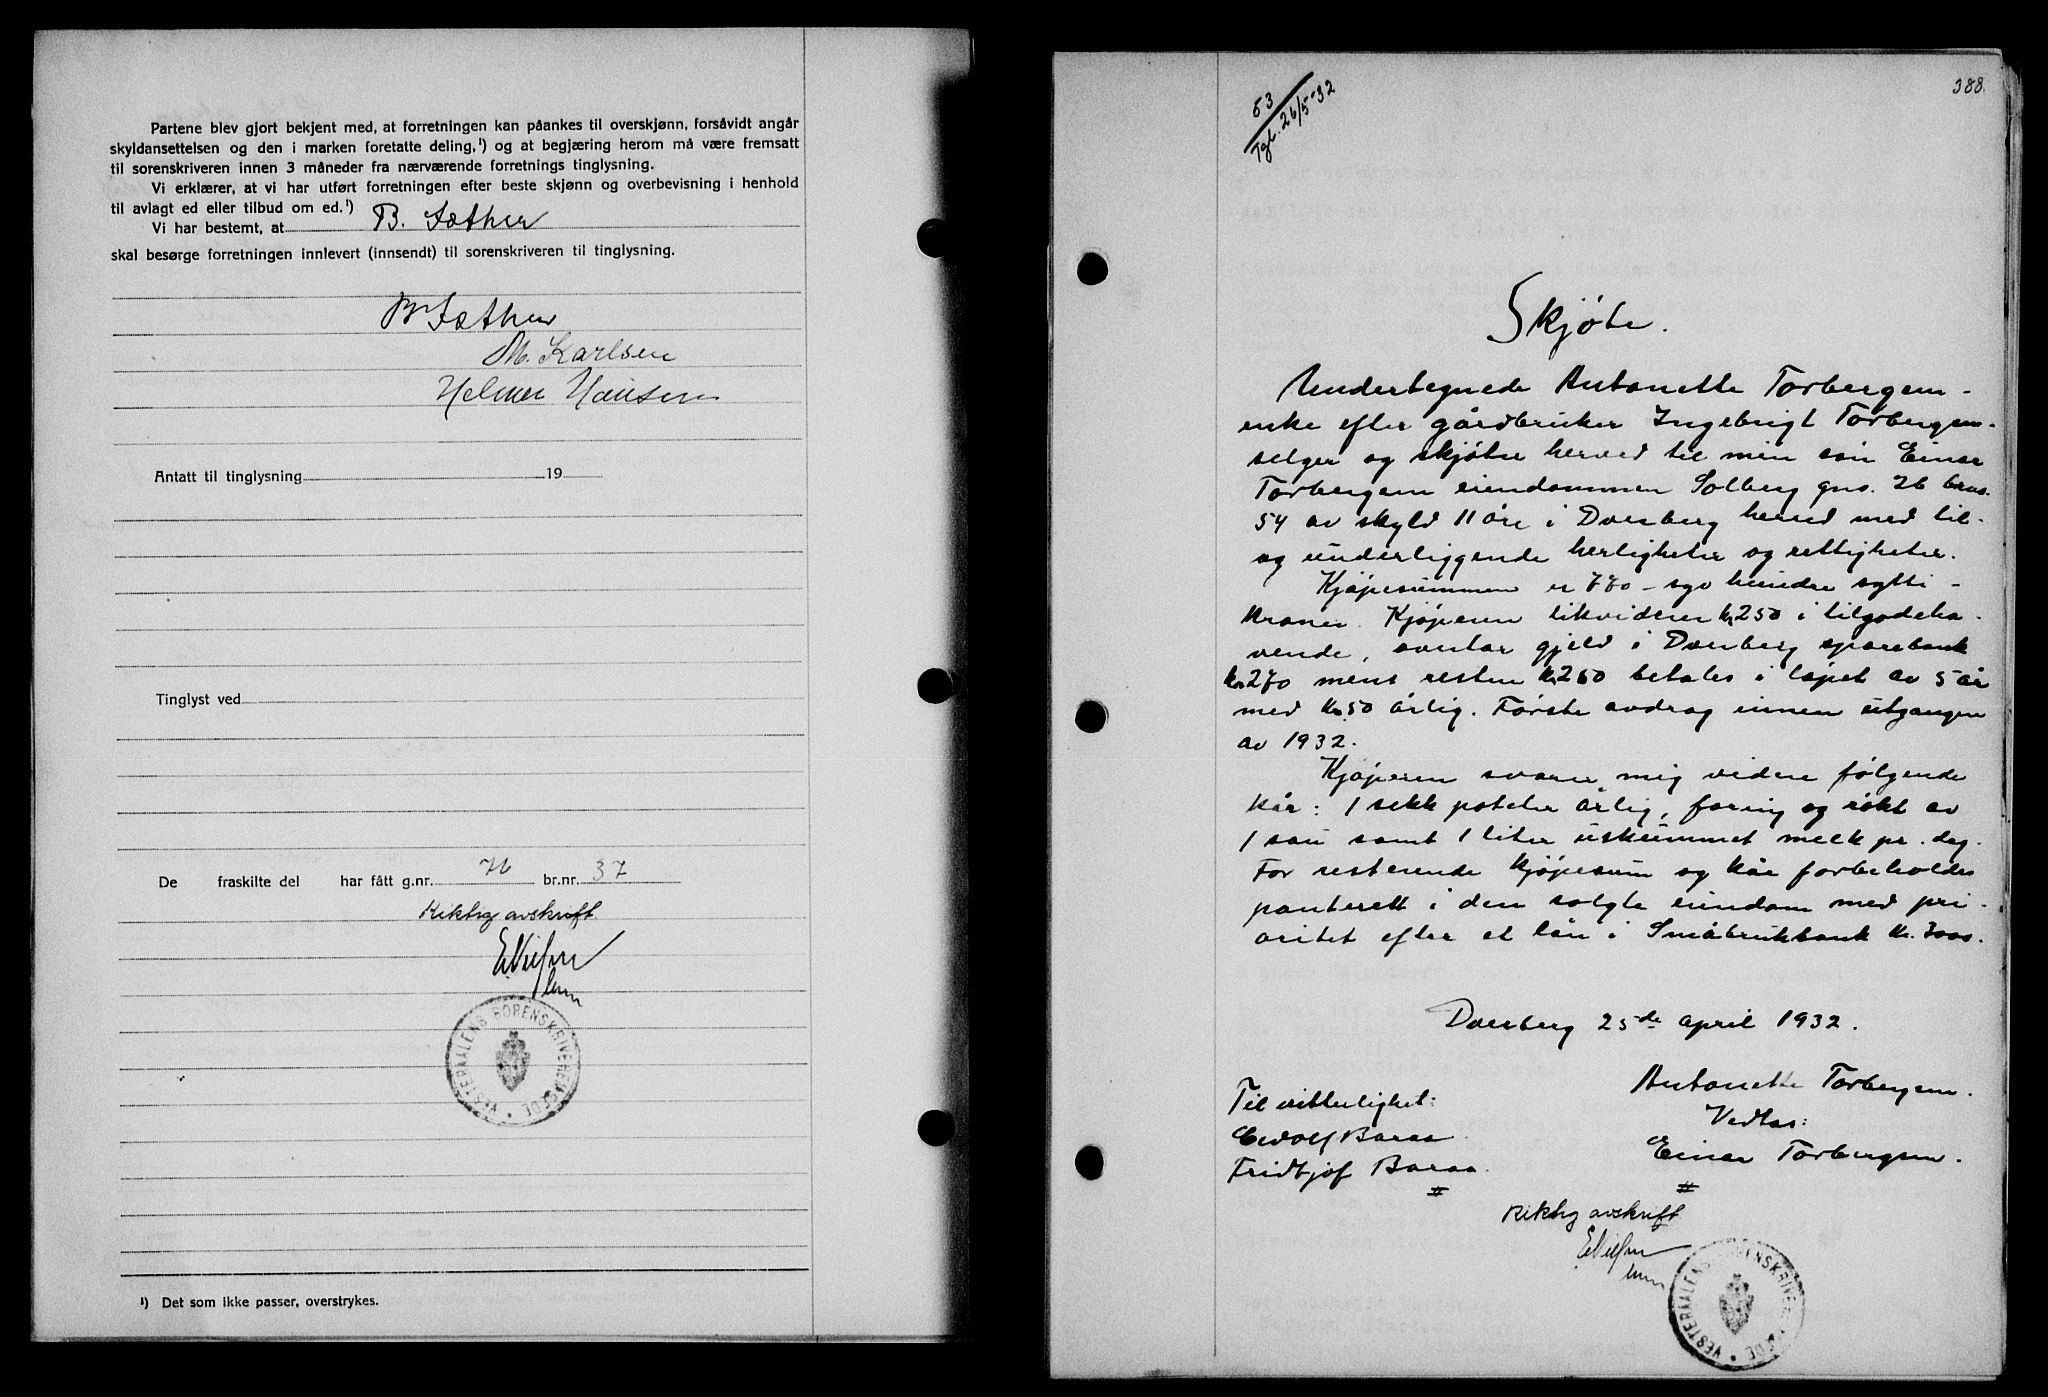 Partene blev gjort bekjent med, at forretningen kan påankes til overskjønn, forsåvidt angår
skyldansettelsen og den i marken foretatte deling,¹) og at begjæring herom må være fremsatt
til sorenskriveren innen 3 måneder fra nærværende forretnings tinglysning.
Vi erklærer, at vi har utført forretningen efter beste skjønn og overbevisning i henhold
til avlagt ed eller tilbud om ed.¹)
Vi har bestemt, at B. Sæther
skal besørge forretningen innlevert (innsendt) til sorenskriveren til tinglysning.
B. Sæther
M. Karlsen
Helmer Hansen
Antatt til tinglysning 19
Tinglyst ved
De fraskilte del har fått g.nr. 76 br.nr. 37
Riktig avskrift
ENilsen
VESTERAALENS SORENSKRIVEREMBEDE
¹) Det som ikke passer, overstrykes.
388.
53
Tgl. 26/5-32
Skjøte.
Undertegnede Antonette Torbergsen -
enke efter gårdbruker Ingebrigt Torbergsen.
selger og skjøter herved til min sön Einar
Torbergsen eiendommen Solberg gno. 26 brno.
54 av skyld 11 öre i Dverberg herred med til-
og underliggende herligheter og rettigheter.
Kjøpesummen er 770 - syv hundre sytti -
kroner. Kjøperen likviderer kr 250 i tilgodeha-
vende, overtar gjeld i Dverberg sparebank
kr. 270 mens resten kr 250 betales i løpet av 5 år
med kr. 50 årlig. Første avdrag innen utgangen
av 1932.
Kjøperen svarer mig videre følgende
kår: 1 sekk poteter årlig, foring og røkt av
1 sau samt 1 liter uskummet melk pr. dag.
For resterende kjøpesum og kår forbeholdes
panterett i den solgte eiendom med pri-
oritet efter et lån i Småbrukbank kr. 3000.
Dverberg 25de april 1932.
Antonette Torbergsen.
Til vitterlighet:
Vedtas:
Edvolf Baraa
Einar Torbergsen.
Fridtjof Baraa.
Riktig avskrift
ENilsen
VESTERAALENS SORENSKRIVEREMBEDE